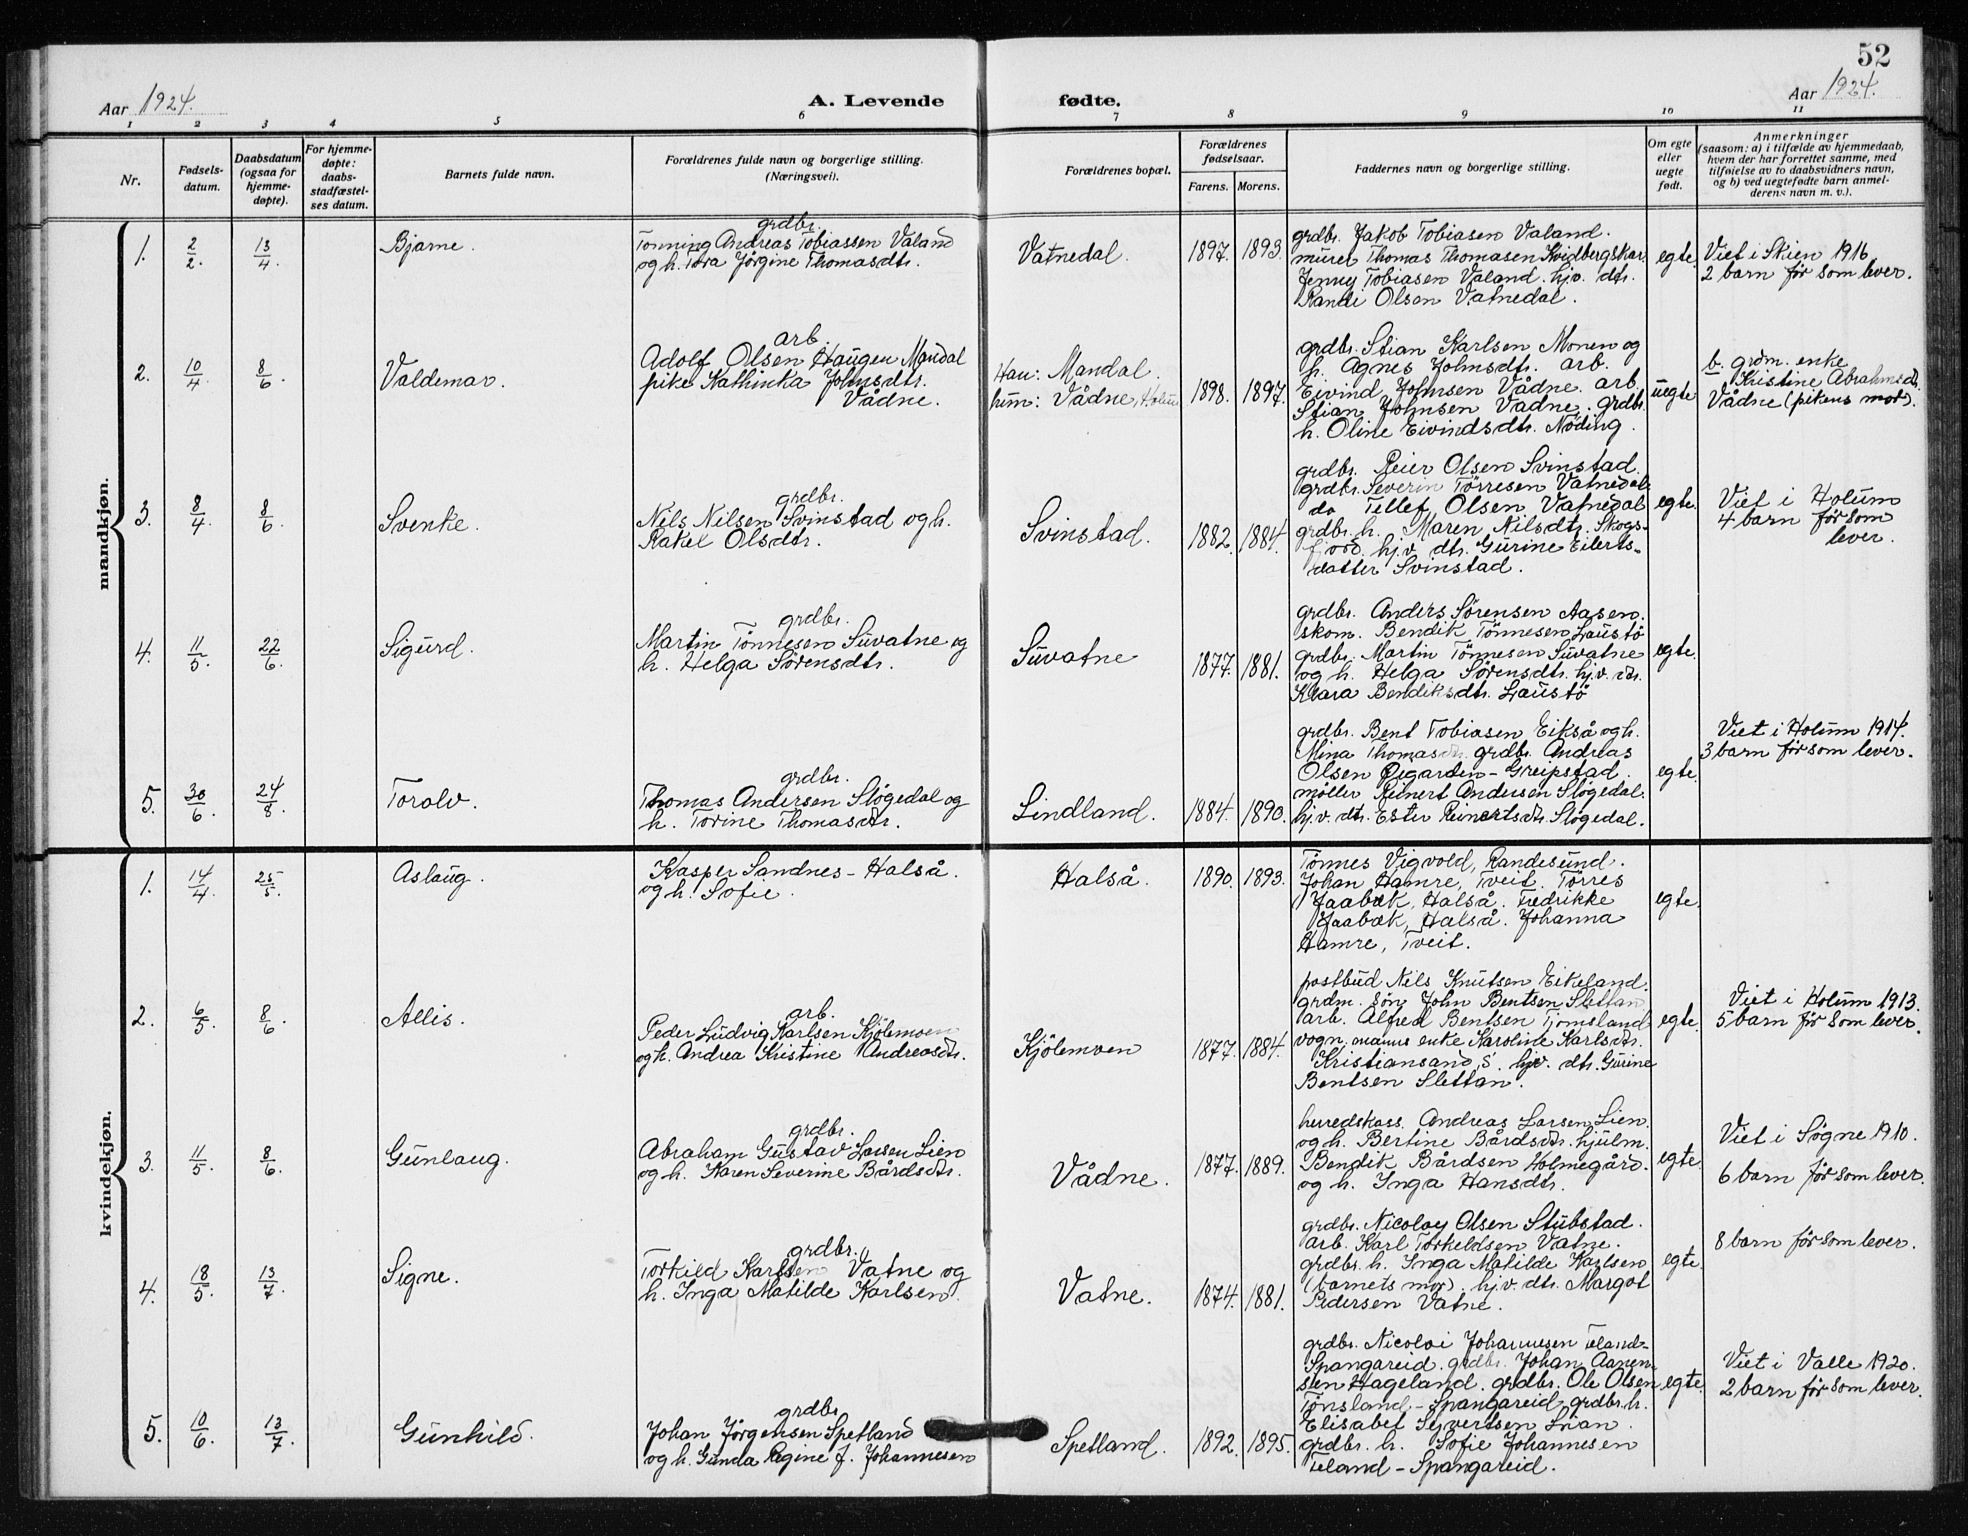 52
Aar 1924.
A. Levende fødte.
Aar 1924.
1 2 3 4 5 6 7 8 9 10 11
Nr.
Fødsels-
datum.
Daabsdatum
(ogsaa for
hjemme-
døpte).
For hjemme-
døpte:
daabs-
stadfæstel-
ses datum.
Barnets fulde navn.
Forældrenes fulde navn og borgerlige stilling.
(Næringsvei).
Forældrenes bopæl.
Forældrenes
fødselsaar.
Farens. Morens.
Faddernes navn og borgerlige stilling.
Om egte
eller
uegte
født.
Anmerkninger
(saasom: a) i tilfælde av hjemmedaab,
hvem der har forrettet samme, med
tilføielse av to daabsvidners navn,
og b) ved uegtefødte barn anmel-
derens navn m. v.).
mandkjøn.
1. 2/2. 13/4. Bjarne.
grdbr.
Tønning Andreas Tobiassen Valand
og h. Tora Jørgine Thomasdtr.
Vatnedal. 1897. 1893.
grdbr. Jakob Tobiasen Valand.
murer Thomas Thomasen Kvidbergskar.
Jenny Tobiasen Valand. hjv. dtr.
Randi Olsen Vatnedal.
egte.
Viet i Skien 1916
2 barn før som lever.
2. 10/4. 8/6. Valdemar.
arb.
Adolf Olsen Haugen Mandal
pike Kathinka Johnsdtr.
Vådne.
Han: Mandal.
hun: Vådne, Holum
1898. 1897.
grdbr. Stian Karlsen Monen og
h. Agnes Johnsdtr. arb.
Eivind Johnsen Vådne. arb.
Stian Johnsen Vådne. grdbr.
h. Oline Eivindsdtr. Nøding.
uegte
b. grdm. enke
Kristine Abrahmsdtr.
Vådne (pikens mor).
3. 8/4. 8/6. Svenke.
grdbr.
Nils Nilsen Svinstad og h.
Rakel Olsdtr.
Svinstad. 1882. 1884.
grdbr. Reier Olsen Svinstad.
grdbr. Severin Tørresen Vatnedal
do Tellef Olsen Vatnedal
grdbr. h. Maren Nilsdtr. Skogs-
fjord. hj.v. dtr. Gurine Eilerts-
datter Svinstad.
egte.
Viet i Holum
4 barn før som
lever.
4. 11/5. 22/6. Sigurd.
grdbr.
Martin Tønnesen Suvatne og
h. Helga Sørensdtr.
Suvatne 1877. 1881.
grdbr. Anders Sørensen Aasen.
skom. Bendik Tønnesen Laustø
grdbr. Martin Tønnesen Suvatne
og h. Helga Sørensdtr. hj.v. dtr.
Klara Bendiksdtr. Laustø
egte.
5. 30/6. 24/8. Toralv.
grdbr.
Thomas Andersen Sløgedal og
h. Torine Thomasdtr.
Lindland. 1884. 1890.
grdbr. Bent Tobiasen Eikså og h.
Mina Thomasdtr. grdbr. Andreas
Olsen Øigarden - Greipstad.
møller Reinert Andersen Sløgedal.
hj.v. dtr. Ester Reinertsdtr. Sløgedal.
egte.
Viet i Holum 1914.
3 barn før som lever.
kvindekjøn.
1. 14/4. 25/5. Aslaug.
Kasper Sandnes - Halså.
og h. Sofie.
Halså. 1890. 1893.
Tønnes Vigvold, Randesund.
Johan Hamre, Tveit. Tørres
Jaabæk, Halså. Fredrikke
Jaabæk, Halså. Johanna
Hamre, Tveit.
egte.
2. 6/5. 8/6. Allis.
arb.
Peder Ludvig Karlsen Kjølemoen
og h. Andrea Kristine Andreasdtr.
Kjölemoen 1877. 1884.
postbud Nils Knutsen Eikeland.
grdm. søn John Bentsen Slettan
arb. Alfred Bentsen Tjomsland
vogn. manns enke Karoline Karlsdtr.
Kristiansand, S. hjv. dtr. Gurine
Bentsen Slettan.
egte.
Viet i Holum 1913.
5 barn før som lever.
3. 11/5. 8/6. Gunlaug.
grdbr.
Abraham Gustav Larsen Lien
og h. Karen Severine Bårdsdtr.
Vådne. 1877. 1889.
herredskass. Andreas Larsen Lien.
og h. Bertine Bårdsdtr. hjulm.
Bendik Bårdsen Holmegård.
og h. Inga Hansdtr.
egte.
Viet i Søgne 1910.
6 barn før som lever.
4. 18/5. 13/7. Signe.
grdbr.
Torkild Karlsen Vatne og
h. Inga Matilde Karlsen.
Vatne. 1874. 1881.
grdbr. Nicolay Olsen Stubstad.
arb. Karl Torkeldsen Vatne.
grdbr. h. Inga Matilde Karlsen
(barnets mor). hj.v. dtr. Margot
Pedersen Vatne.
egte.
8 barn før som lever.
5. 10/6. 13/7. Gunhild.
grdbr
Johan Jörgensen Spetland
og h. Gunda Regine f. Johannesen
Spetland. 1892. 1895.
grdbr. Nicolai Johannesen Teland-
Spangareid. grdbr. Johan Aanen-
sen Hageland. grdbr. Ole Olsen
Tønsland - Spangareid, grdbr. h.
Elisabet Syvertsen Lian.
grdbr. h. Sofie Johannesen
Teland - Spangareid.
egte.
Viet i Valle 1920.
2 barn før som lever.